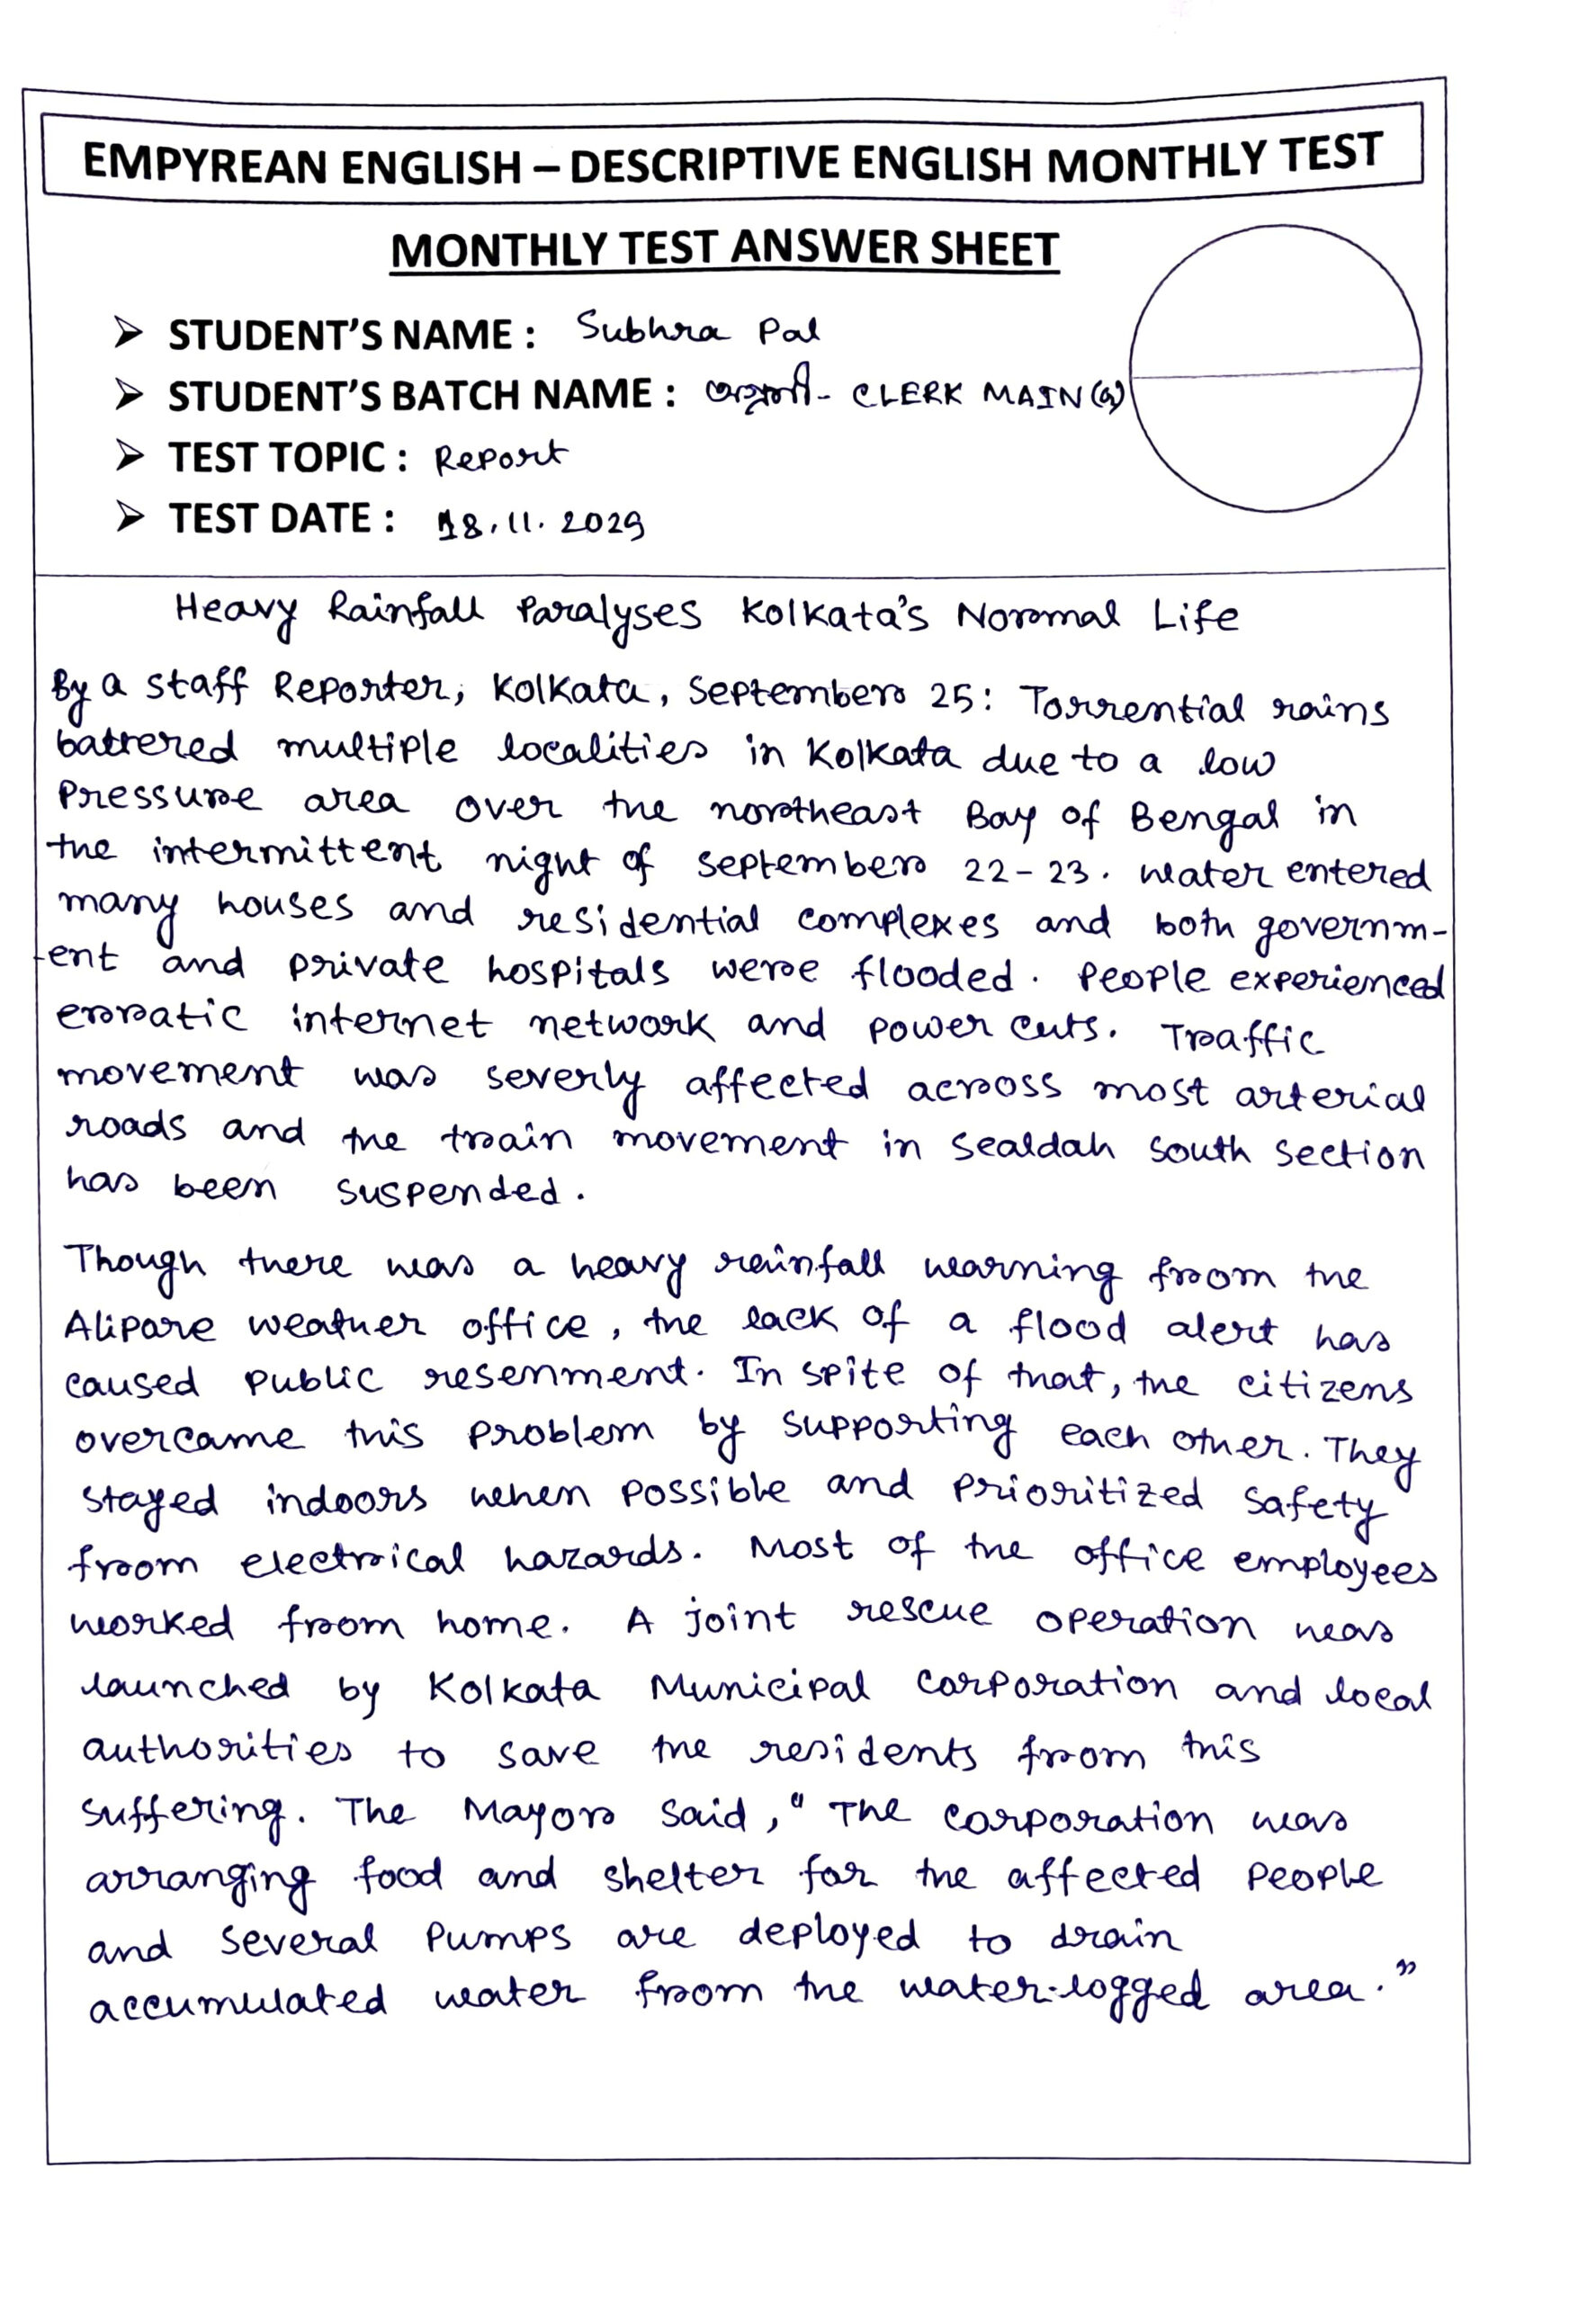 EMPYREAN ENGLISH – DESCRIPTIVE ENGLISH MONTHLY TEST
MONTHLY TEST ANSWER SHEET
➢ STUDENT'S NAME : Subhra Pal
➢ STUDENT'S BATCH NAME : - CLERK MAIN
➢ TEST TOPIC : Report
➢ TEST DATE : 18.11.2029
Heavy Rainfall Paralyses Kolkata's Normal Life
By a staff Reporter, Kolkata, September 25: Torrential rains
battered multiple localities in Kolkata due to a low
Pressure area over the northeast Bay of Bengal in
the intermittent night of September 22-23. Water entered
many houses and residential complexes and both governm-
-ent and private hospitals were flooded. People experienced
erratic internet network and power cuts. Traffic
movement was severly affected across most arterial
roads and the train movement in Sealdah South Section
has been suspended.
Though there was a heavy rainfall warning from the
Alipore weather office, the lack of a flood alert has
caused public resenment. In spite of that, the citizens
overcame this problem by supporting each other. They
stayed indoors when possible and prioritized safety
from electrical hazards. Most of the office employees
worked from home. A joint rescue operation was
launched by Kolkata Municipal Corporation and local
authorities to save the residents from this
suffering. The Mayor said, "The corporation was
arranging food and shelter for the affected people
and several pumps are deployed to drain
accumulated water from the water-logged area."